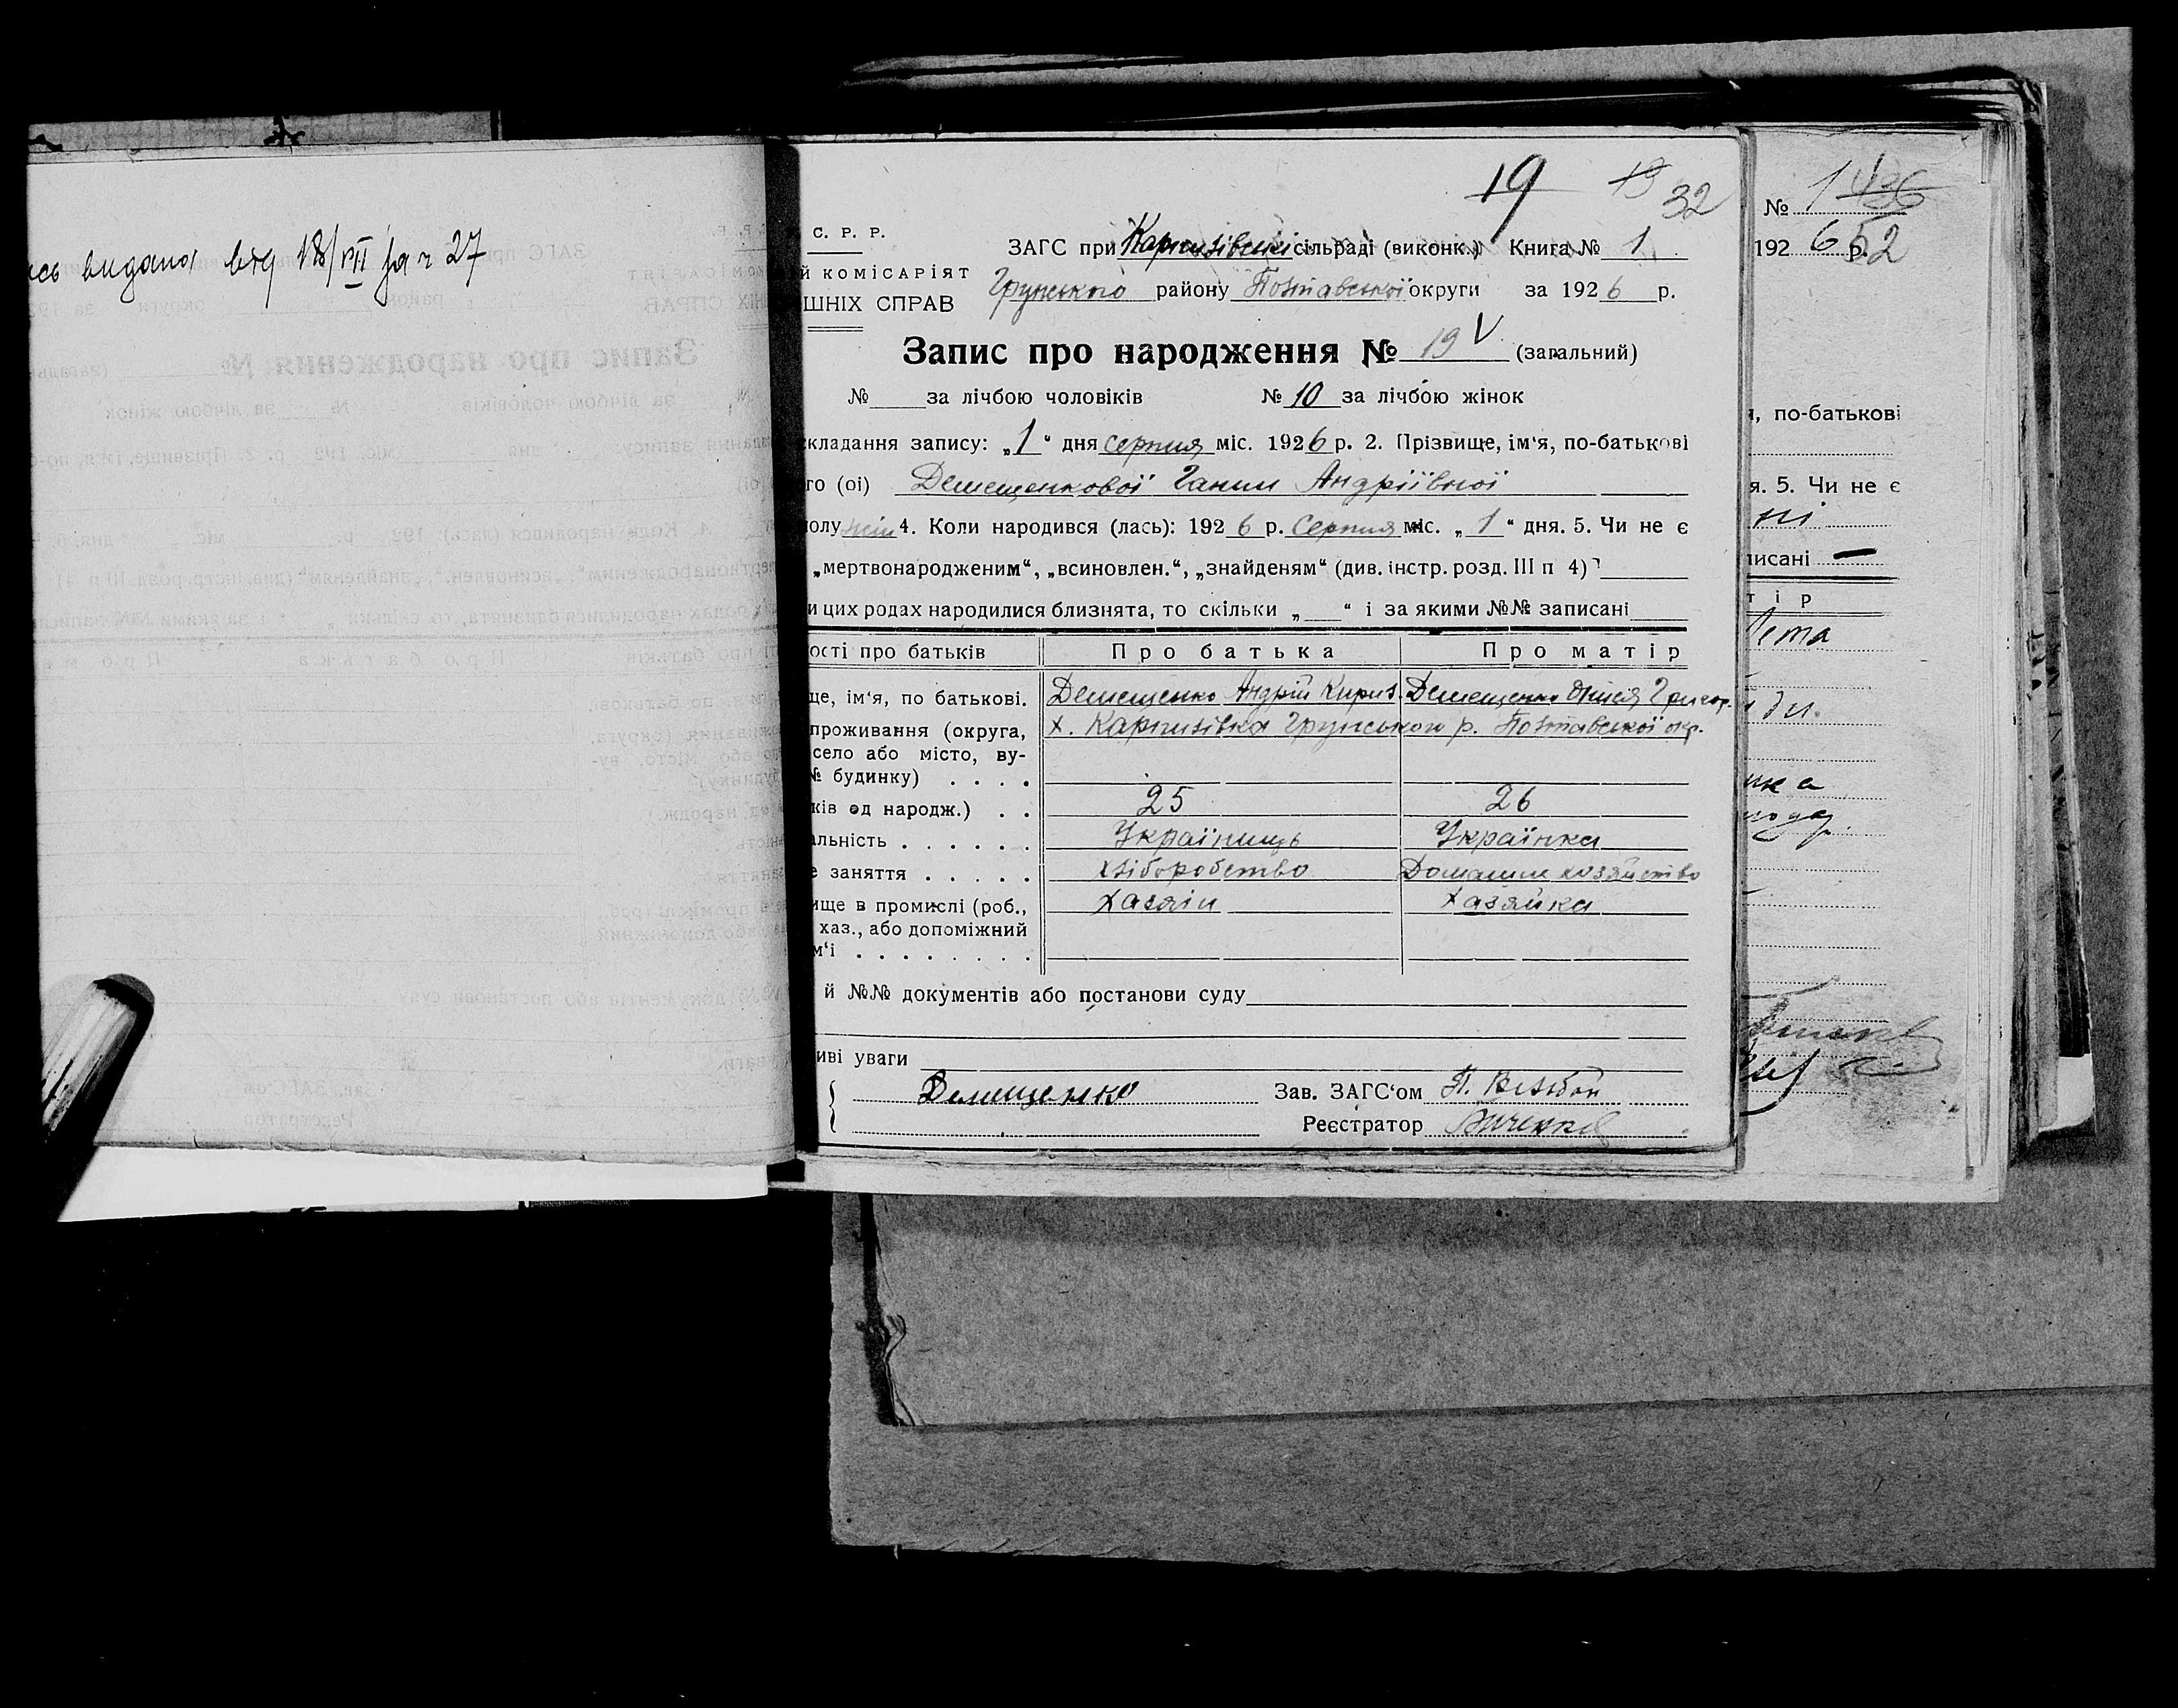 видана від 18/VII за № 27
19 19 32
С. Р. Р.
ЗАГС при сільраді (виконк.) Книга № 1
й КОМІСАРІЯТ
ШНІХ СПРАВ
Грунського району Полтавської округи за 1926 р.
Запис про народження № 19 V (загальний)
№ за лічбою чоловіків № 10 за лічбою жінок
складання запису: „1“ дня серпня міс. 1926 р. 2. Прізвище, ім‘я, по-батькові
го (ої) Демещенкової Ганни Андріївної
полу жін 4. Коли народився (лась): 1926 р. Серпня міс. „1“ дня. 5. Чи не є
„мертвонародженим“, „всиновлен.“, „знайденям“ (див. інстр. розд. III п 4)
и цих родах народилися близнята, то скільки „ “ і за якими №№ записані
ості про батьків Про батька Про матір
ще, ім‘я, по батькові. Демещенко Андрій Кирил. Демещенко Григор.
проживання (округа, х. Грунського р. Полтавської окр.
село або місто, ву-
№ будинку) . . . .
ків од народж.) . . 25 26
альність . . . . . . Українець Українка
е заняття . . . . . хліборобство Домашне хозяйство
ище в промислі (роб., Хазяін Хазяйка
хаз., або допоміжний
м‘ї . . . . . . . .
й №№ документів або постанови суду
иві уваги
Демещенко Зав. ЗАГС‘ом П.
Реєстратор
№ 1 436
1926 р. 52
, по-батькові
я. 5. Чи не є
ні
писані —
тір